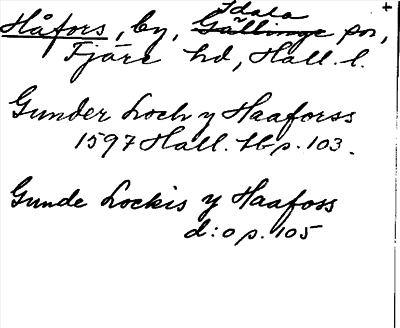 Idala +
Håfors, by, Gällinge sn,
Fjäre hd, Hall. l.
Gunder Loch y Haaforss
1597 Hall. Lb p. 103.
Gunde Lockis y Haafoss
d:o p. 105